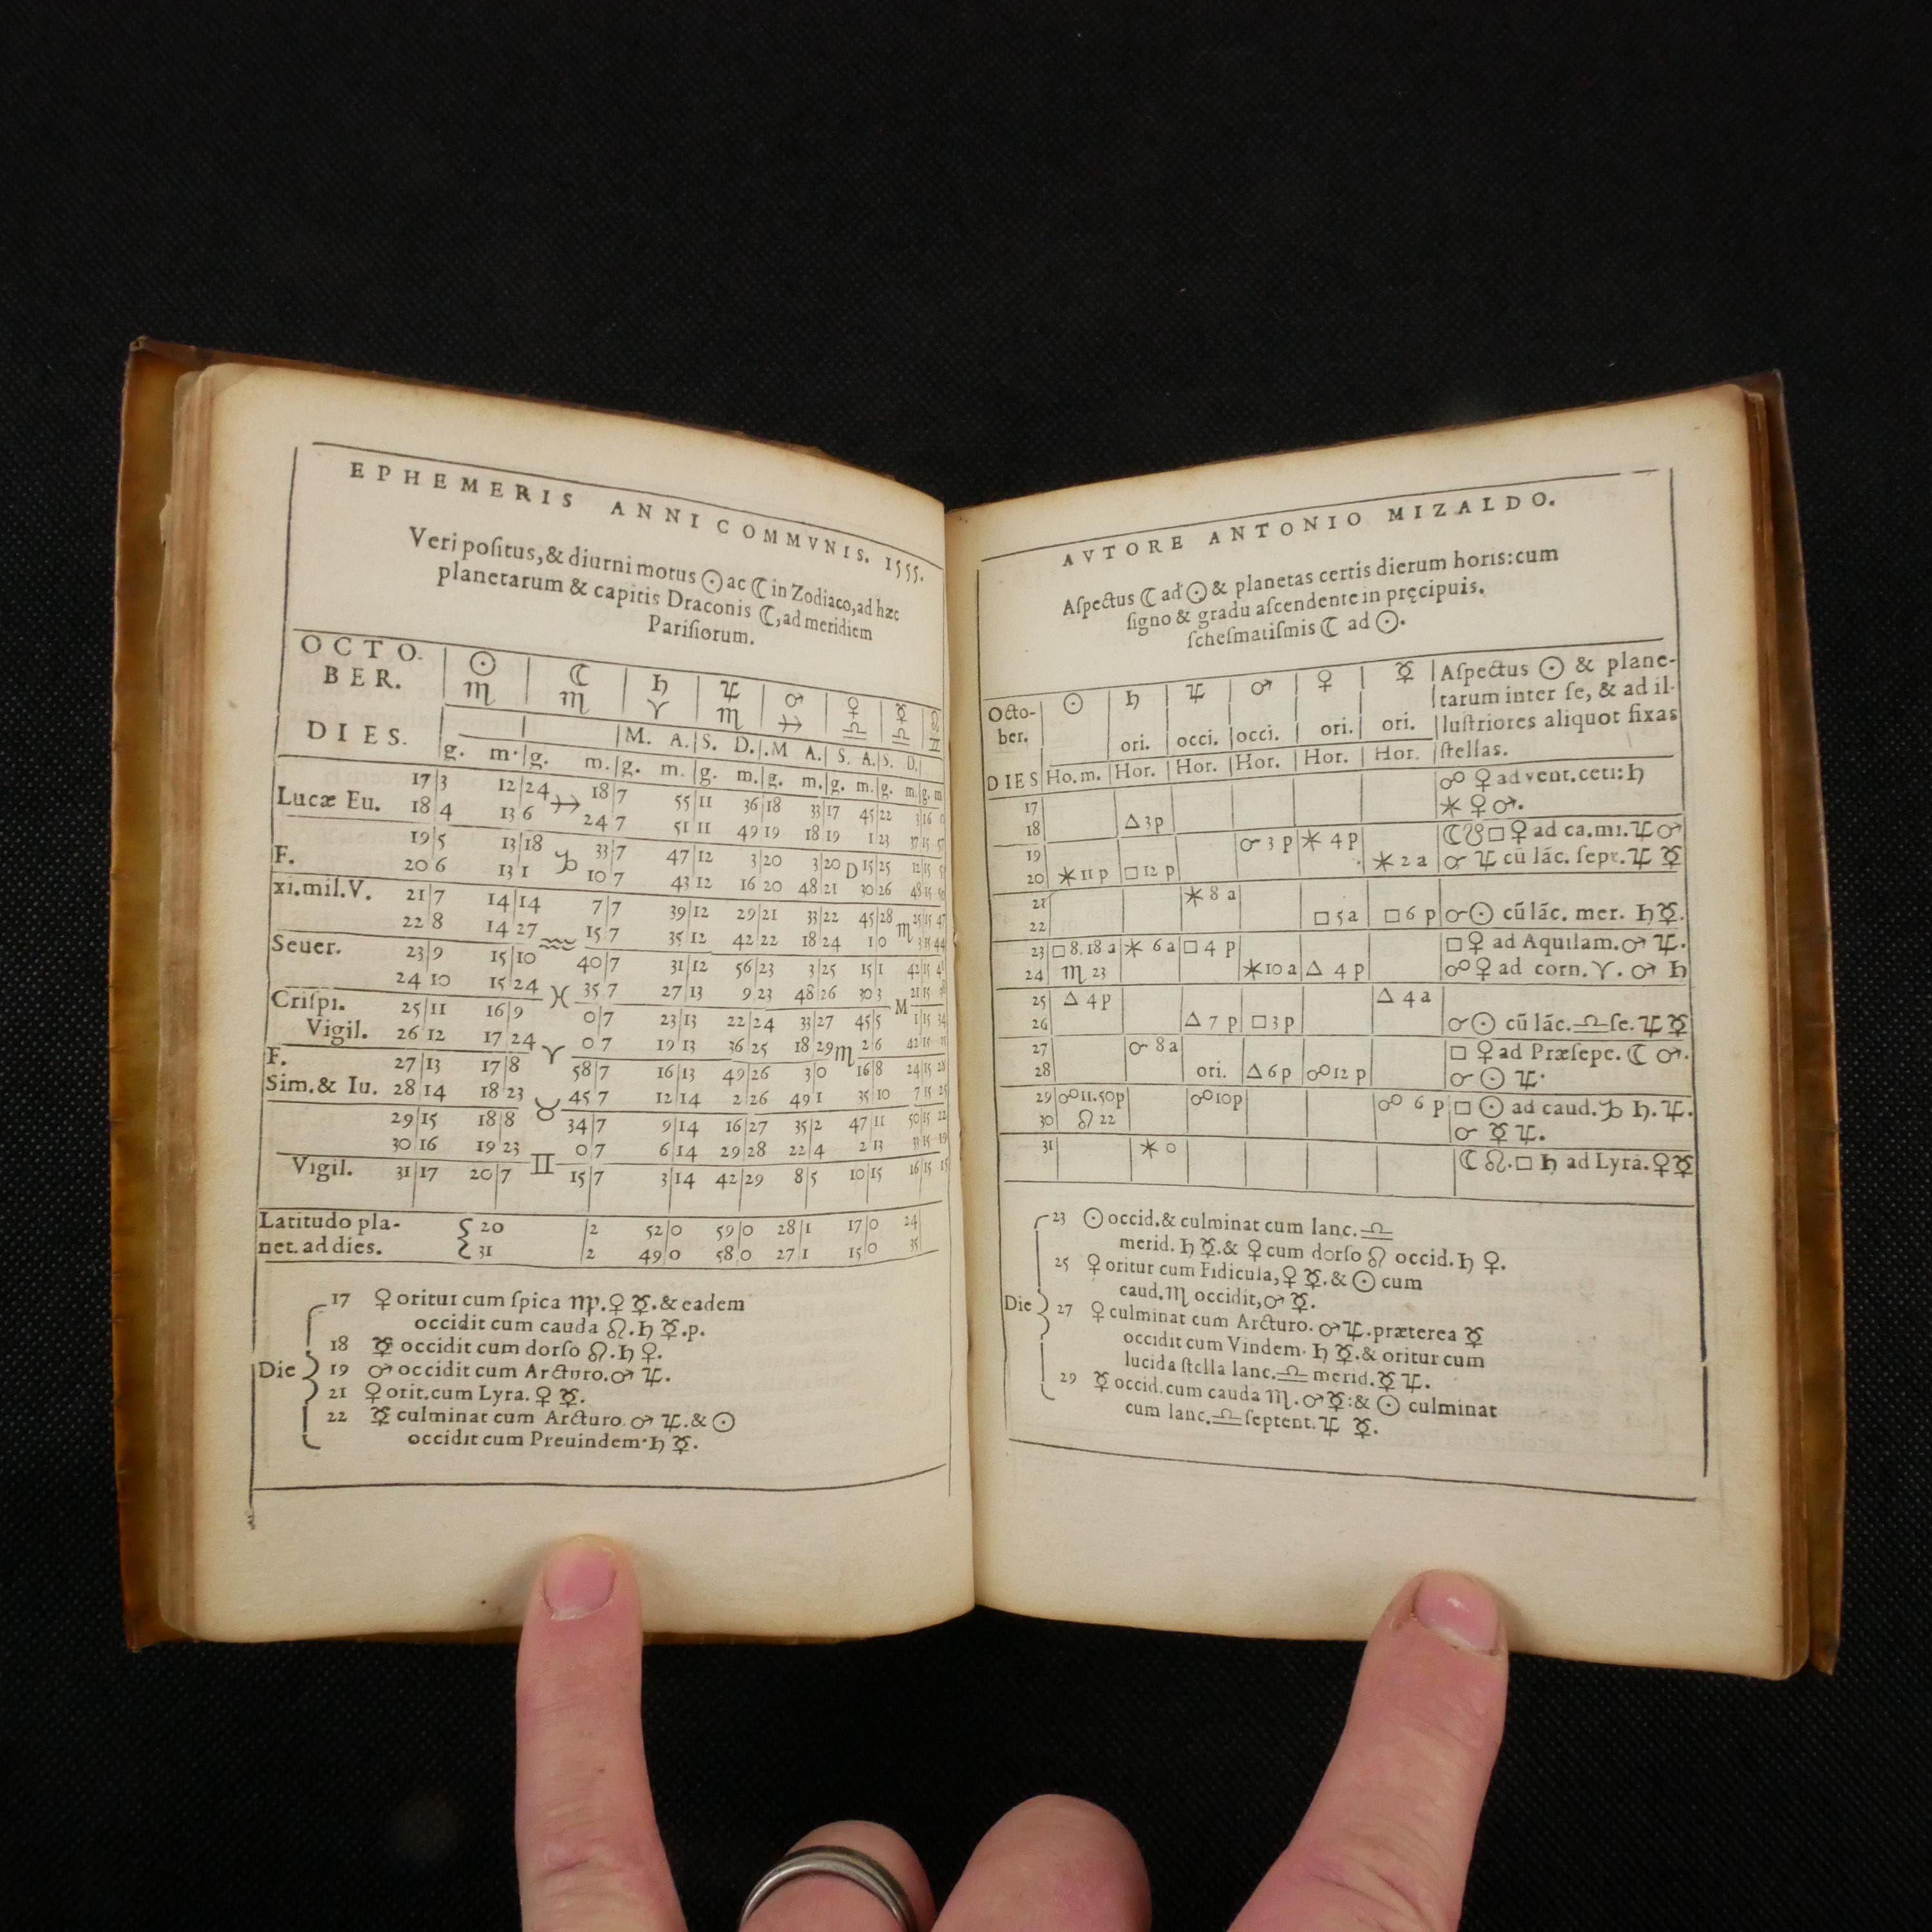 EPHEMERIS ANNI COMMVNIS. 1555.
Veri poſitus, & diurni motus ☉ ac ☾ in Zodiaco, ad hæc
planetarum & capitis Draconis ☾, ad meridiem
Pariſiorum.
OCTO- ☉ ☾ ♄ ♃ ♂ ♀ ☿ ☊
BER. ♏ ♏ ♈ ♏ ♐ ♎ ♎ ♊
DIES. M. A. S. D. M A. S. A. S. D.
g. m. g. m. g. m. g. m. g. m. g. m. g. m. g. m
17 3 12 24 ♐ 18 7 55 11 36 18 33 17 45 22
Lucæ Eu. 18 4 13 6 24 7 51 11 49 19 18 19 1 23 37 15 57
19 5 13 18 ♑ 33 7 47 12 3 20 3 20 D 15 25 12 15
F. 20 6 13 1 10 7 43 12 16 20 48 21 30 26 48 15
xi.mil.V. 21 7 14 14 7 7 39 12 29 21 33 22 45 28 25 15 47
22 8 14 27 ♒ 15 7 35 12 42 22 18 24 1 0 ♏ 3 15 44
Seuer. 23 9 15 10 40 7 31 12 56 23 3 25 15 1 42 15
24 10 15 24 ♓ 35 7 27 13 9 23 48 26 30 3 21 15
Criſpi. 25 11 16 9 0 7 23 13 22 24 33 27 45 5 M 1 15 34
Vigil. 26 12 17 24 ♈ 0 7 19 13 36 25 18 29 ♏ 2 6 42 15
F. 27 13 17 8 58 7 16 13 49 26 3 0 16 8 24 15 28
Sim.& Iu. 28 14 18 23 ♉ 45 7 12 14 2 26 49 1 35 10 7 15 25
29 15 18 8 34 7 9 14 16 27 35 2 47 11 50 15 22
30 16 19 23 ♊ 0 7 6 14 29 28 22 4 2 13 33 15 19
Vigil. 31 17 20 7 15 7 3 14 42 29 8 5 10 15 16 15
Latitudo pla- { 20 2 52 0 59 0 28 1 17 0 24
net. ad dies. 31 2 49 0 58 0 27 1 15 0 35
17 ♀ oritur cum ſpica ♍. ♀ ☿. & eadem
occidit cum cauda ♌. ♄ ☿. p.
18 ☿ occidit cum dorſo ♌. ♄ ♀.
Die 19 ♂ occidit cum Arcturo. ♂ ♃.
21 ♀ orit. cum Lyra. ♀ ☿.
22 ☿ culminat cum Arcturo. ♂ ♃. & ☉
occidit cum Preuindem. ♄ ☿.
AVTORE ANTONIO MIZALDO.
Aſpectus ☾ ad ☉ & planetas certis dierum horis: cum
ſigno & gradu aſcendente in pręcipuis.
ſcheſmatiſmis ☾ ad ☉.
Octo- ☉ ♄ ♃ ♂ ♀ ☿ Aſpectus ☉ & plane-
tarum inter ſe, & ad il-
ber. ori. occi. occi. ori. ori. luſtriores aliquot fixas
DIES Ho. m. Hor. Hor. Hor. Hor. Hor. ſtellas.
17 ☍ ♀ ad vent. ceti: ♄
18 △ 3 p ⚹ ♀ ♂.
19 ☌ 3 p ⚹ 4 p ☾ ☋ □ ♀ ad ca. mi. ♃ ♂
20 ⚹ 11 p □ 12 p ⚹ 2 a ☌ ♃ cū lāc. ſept. ♃ ☿
21 ⚹ 8 a
22 □ 5 a □ 6 p ☌ ☉ cū lāc. mer. ♄ ☿.
23 □ 8. 18 a ⚹ 6 a □ 4 p □ ♀ ad Aquilam. ♂ ♃.
24 ♏ 23 ⚹ 10 a △ 4 p ☍ ♀ ad corn. ♈. ♂ ♄
25 △ 4 p △ 4 a
26 △ 7 p □ 3 p ☌ ☉ cū lāc. ♎ ſe. ♃ ☿
27 ☌ 8 a □ ♀ ad Præſepe. ☾ ♂.
28 ori. △ 6 p ☍ 12 p ☌ ☉ ♃.
29 ☍ 11. 50 p ☍ 10 p ☍ 6 p □ ☉ ad caud. ♑ ♄. ♃.
30 ♌ 22 ☌ ☿ ♃.
31 ⚹ 0 ☾ ☊. □ ♄ ad Lyrā. ♀ ☿
23 ☉ occid. & culminat cum lanc. ♎
merid. ♄ ☿. & ♀ cum dorſo ♌ occid. ♄ ♀.
25 ♀ oritur cum Fidicula, ♀ ☿. & ☉ cum
caud. ♏ occidit, ♂ ☿.
Die 27 ♀ culminat cum Arcturo. ♂ ♃. præterea ☿
occidit cum Vindem. ♄ ☿. & oritur cum
lucida ſtella lanc. ♎ merid. ☿ ♃.
29 ☿ occid. cum cauda ♏. ♂ ☿: & ☉ culminat
cum lanc. ♎ ſeptent. ♃ ☿.